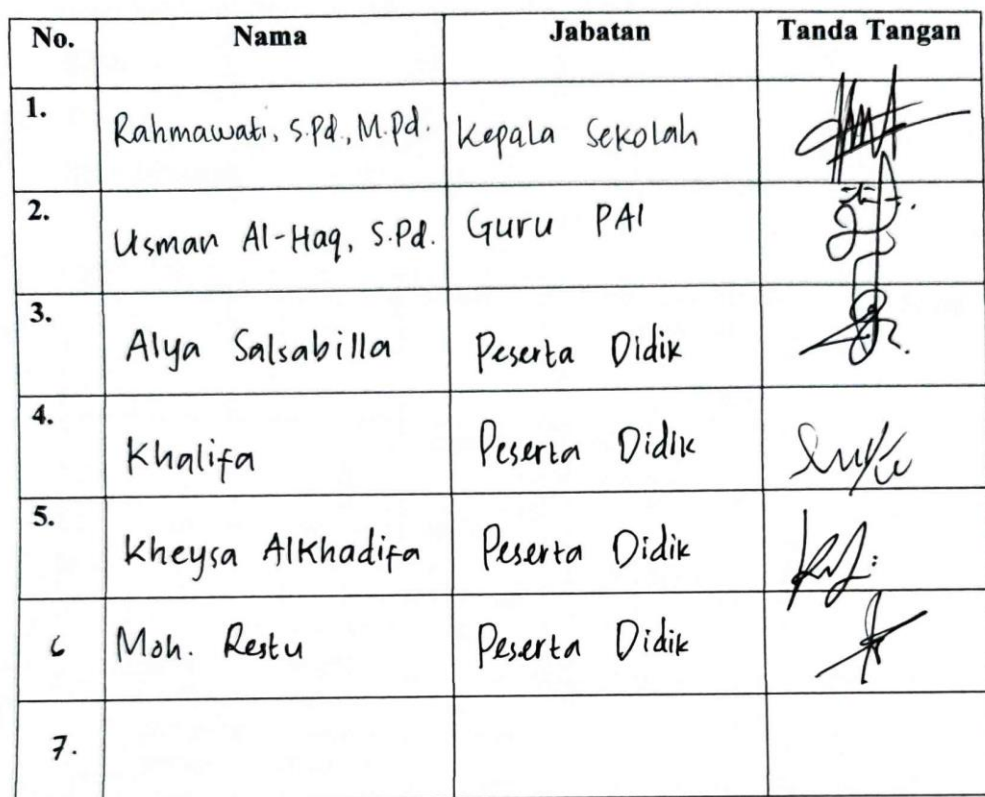 No. Nama Jabatan Tanda Tangan
1. Rahmawati, S.Pd., M.Pd. Kepala Sekolah
2. Usman Al-Haq, S.Pd. Guru PAI
3. Alya Salsabilla Peserta Didik
4. Khalifa Peserta Didik
5. Kheysa AlKhadifa Peserta Didik
6 Moh. Restu Peserta Didik
7.